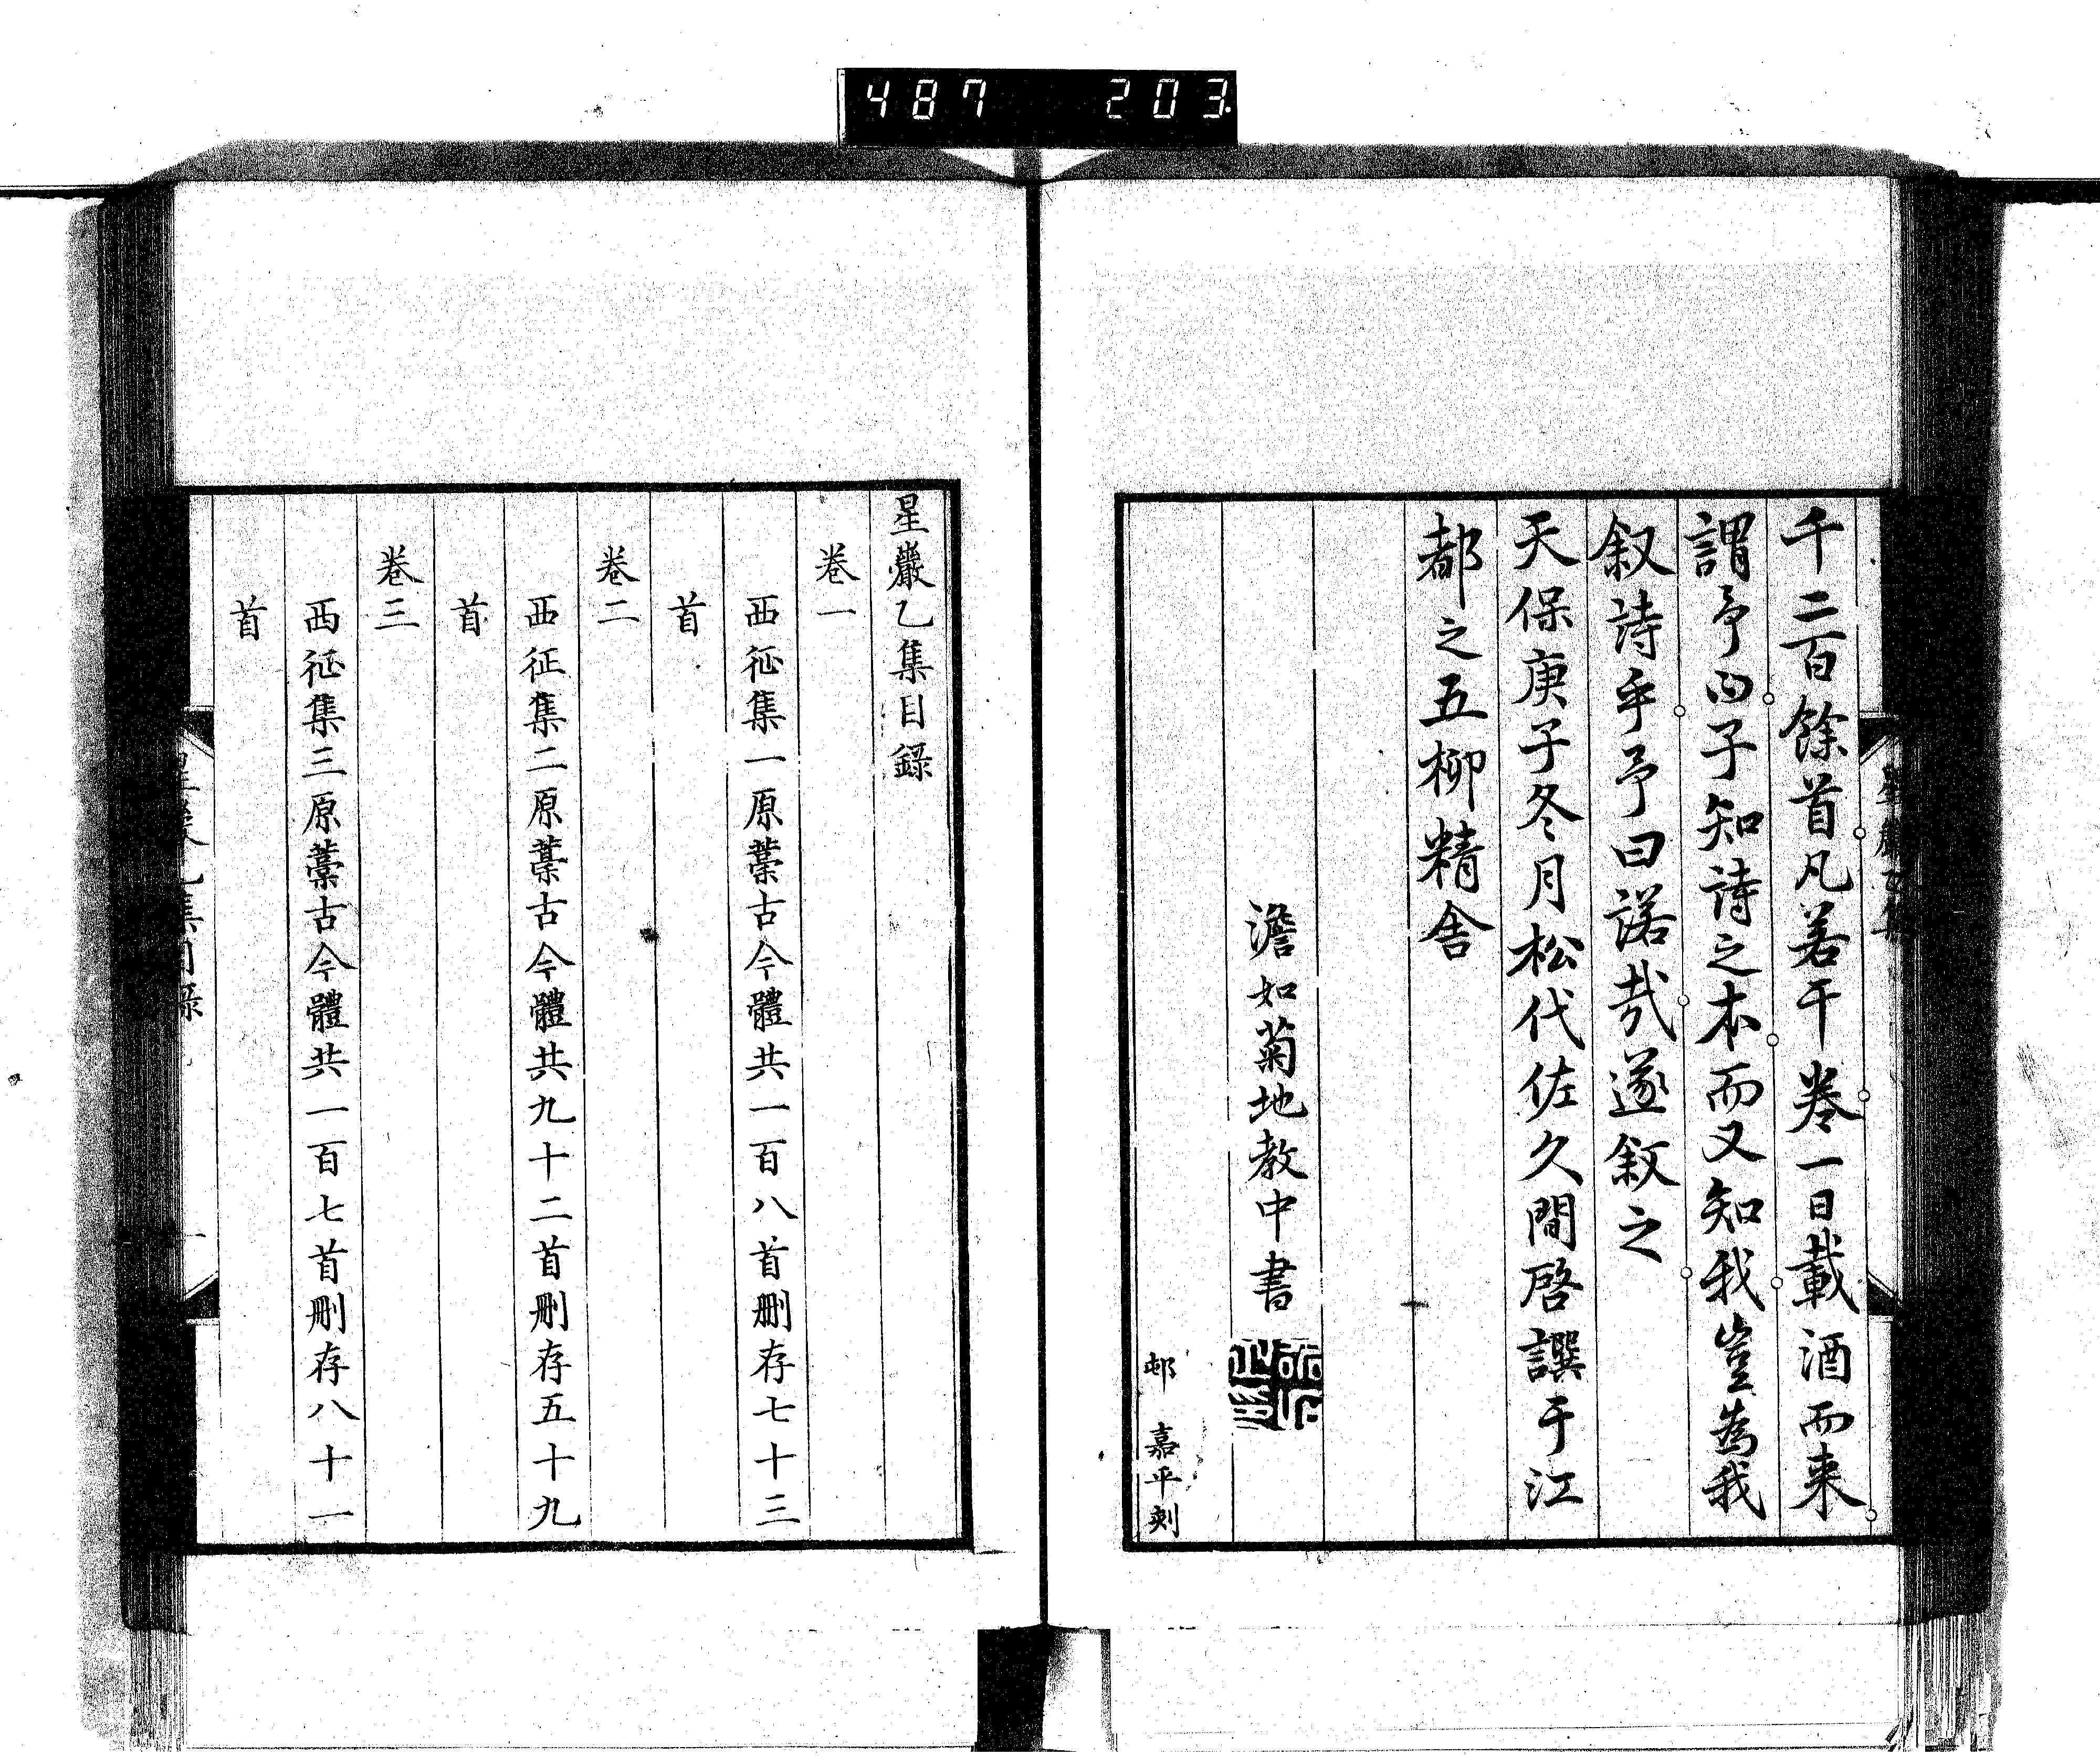 487 203
千二百餘首凡若干卷一日載酒而来
謂予曰子知詩之本而又知我豈為我
叙詩乎予曰諾哉遂叙之
天保庚子冬月松代佐久間啓譔于江
都之五柳精舍
澹如菊地教中書
邨嘉平刻
星巖乙集目錄
卷一
西征集一原藁古今體共一百八首刪存七十三
首
卷二
西征集二原藁古今體共九十二首刪存五十九
首
卷三
西征集三原藁古今體共一百七首刪存八十一
首